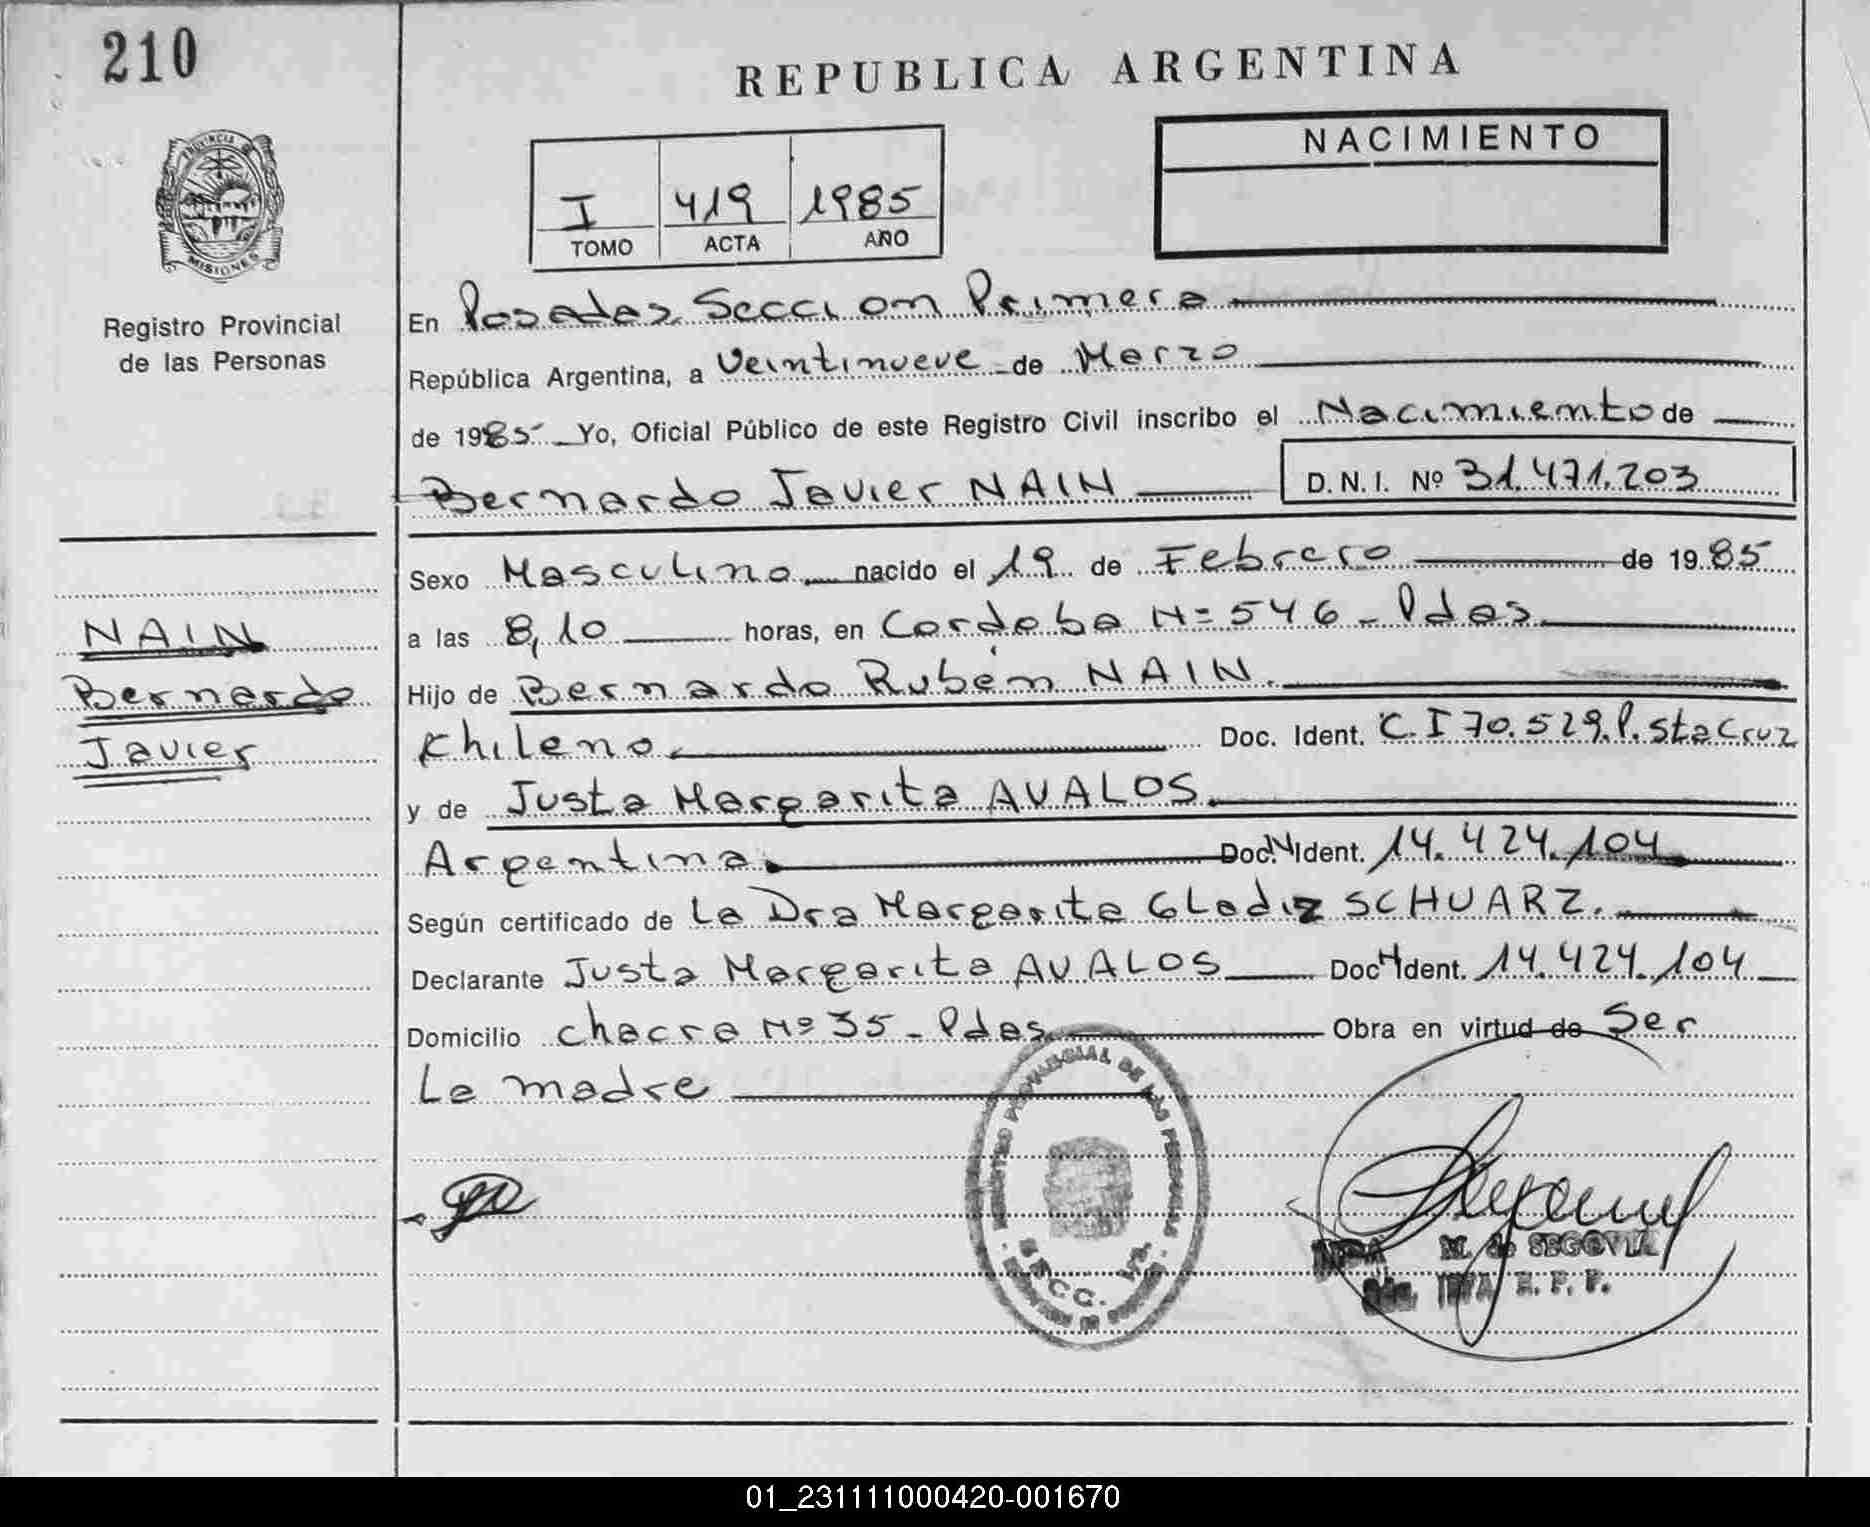 210
REPUBLICA ARGENTINA
PROVINCIA DE
MISIONES
Registro Provincial
de las Personas
I 419 1985
TOMO ACTA AÑO
NACIMIENTO
En Posadas Seccion Primera
República Argentina, a Veintinueve de Marzo
de 1985 Yo, Oficial Público de este Registro Civil inscribo el Nacimiento de
Bernardo Javier NAIN D.N.I. Nº 31.471.203
Sexo Masculino nacido el 19 de Febrero de 1985
a las 8,10 horas, en Cordoba Nº 546 - Pdas
Hijo de Bernardo Rubén NAIN.
Chileno Doc. Ident. C.I 70.529.P.Sta Cruz
y de Justa Margarita AVALOS
Argentina Doc. N Ident. 14.424.104
Según certificado de La Dra Margarita Gladiz SCHUARZ.
Declarante Justa Margarita AVALOS Doc N Ident. 14.424.104
Domicilio chacra Nº 35 - Pdas Obra en virtud de Ser
La madre
NAIN
Bernardo
Javier
REGISTRO PROVINCIAL DE LAS PERSONAS
SECC. 1ra.
M. de SEGOVIA
R. P. P.
01_231111000420-001670